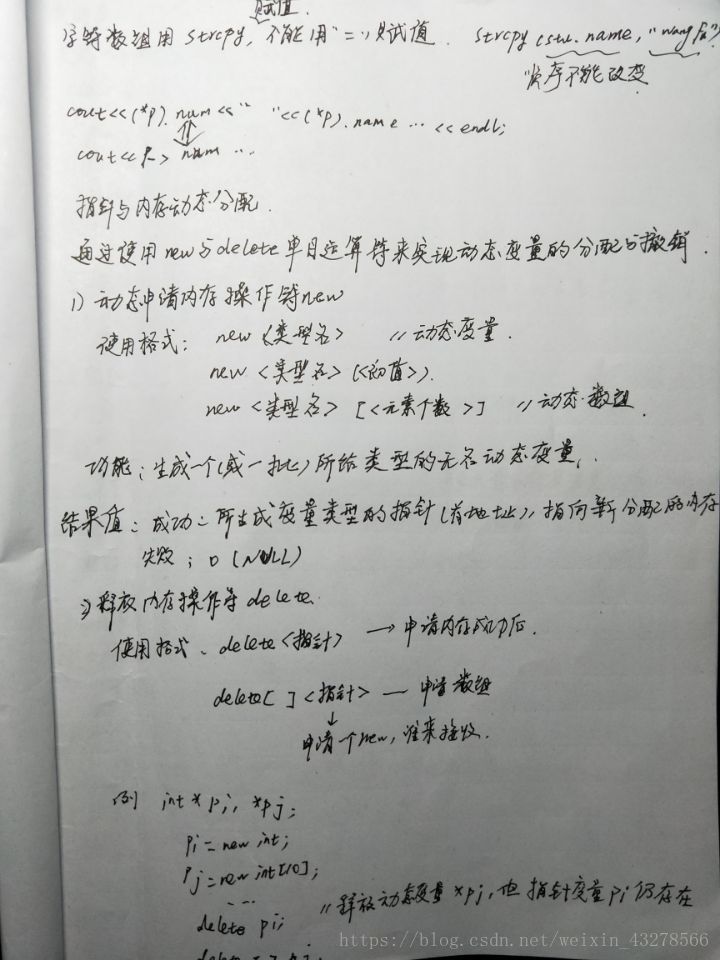 赋值.
字符数组用 strcpy, 不能用"="赋值. strcpy(stu.name, "wang fa")
顺序不能改变
cout<<(*p).num<<" "<<(*p).name … <<endl;
cout<<p->num …
指针与内存动态分配.
通过使用new与delete单目运算符来实现动态变量的分配与撤销.
1) 动态申请内存操作符new
使用格式: new <类型名> //动态变量.
new <类型名> (<初值>).
new <类型名> [<元素个数>] //动态数组.
功能: 生成一个(或一批)所给类型的无名动态变量.
结果值: 成功: 所生成变量类型的指针(有地址), 指向新分配的内存
失败: 0 (NULL)
2) 释放内存操作符delete.
使用格式、delete<指针> → 申请内存成功后.
delete[ ] <指针> — 申请数组
↓
申请个new, 谁来接收.
例 int *pi, *pj;
pi=new int;
pj=new int[10];
…
delete pi; //释放动态变量*pj, 但指针变量pi仍存在
https://blog.csdn.net/weixin_43278566